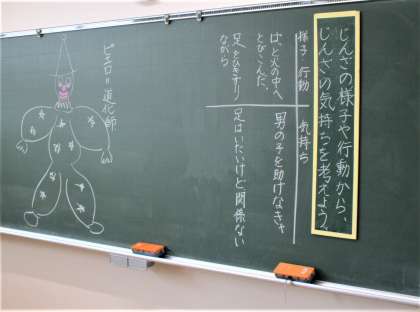 じんざの様子や行動から、
じんざの気持ちを考えよう。
様子・行動
気持ち
はっと火の中へ
とびこんだ、
男の子を助けなきゃ
足をひきずり
ながら
足はいたいけど関係ない
ピエロ=道化師